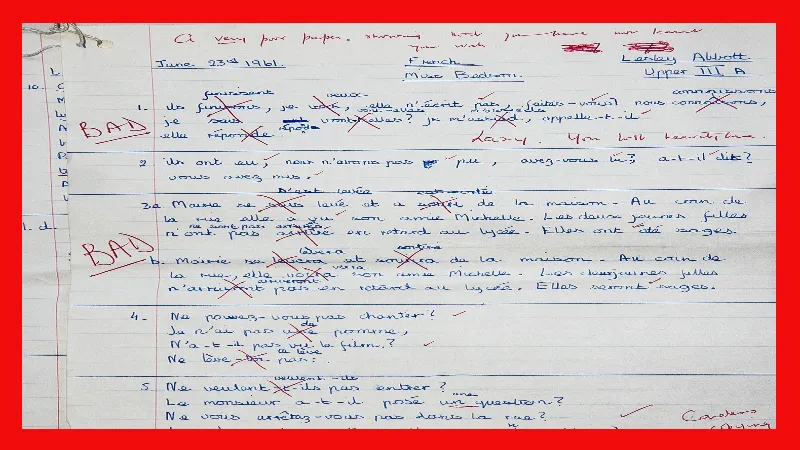 A very poor paper, showing that you have not learnt
your work
June 23rd 1961. French Lesley Abbott.
Miss Bedson. Upper III A
finissent veux connaissons
1. ils finissons, je, elle n'écrit pas, faites-vous? nous connaissons,
BAD
je sais vont-elles? je m'assied, appelle-t-il
elle réponde répond Lazy. You
2 ils ont eu, nous n'avons pas pu, avez-vous lu? a-t-il dit?
vous avez mis.
s'est lavée est sortie
3a Mairie se lavé et a sorti de la maison. Au coin de
la rue elle a vu son amie Michelle. Les deux jeunes filles
ne sont pas arrivés
n'ont pas arrivé en retard au lycée. Elles ont été sages.
BAD
lavera sortira
b. Mairie se et de la maison. Au coin de
verra
la rue, elle voira son amie Michelle. Les deux jeunes filles
arriveront
n'arriveront pas en retard au lycée. Elles seront sages.
4. Ne pouvez-vous pas chanter?
de
Je n'ai pas une pomme,
N'a-t-il pas vu le film?
te lève
Ne lève-toi pas!
veulent-ils
5. Ne veulent t-ils pas entrer?
une
Le monsieur a-t-il posé un question?
Ne vous arrêtez-vous pas dans la rue?
Careless
copying